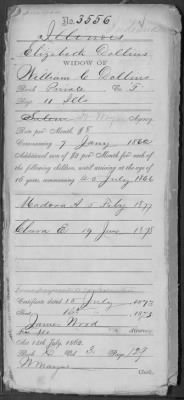 No. 3556
Illinois
Elizabeth Collins
WIDOW OF
William C Collins
Rank Private Co. F
Reg. 11 Ills
Agency
Rate per Month $8
Commencing 7 Jany 186
Additional sum of $2 per Month for each of
the following children, until arriving at the age of
16 years, commencing 25 July 1866
Madora A 5 Feby 1877
Clara E. 19 June 1878
Certificate dated 15 July 1873
Sent 16 1873
James Wood
Attorney
Act 14th July, 1862.
Book D Vol. 3. Page 129
Clerk.